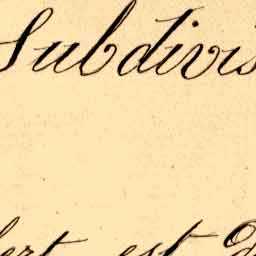 Subdivis
bert est